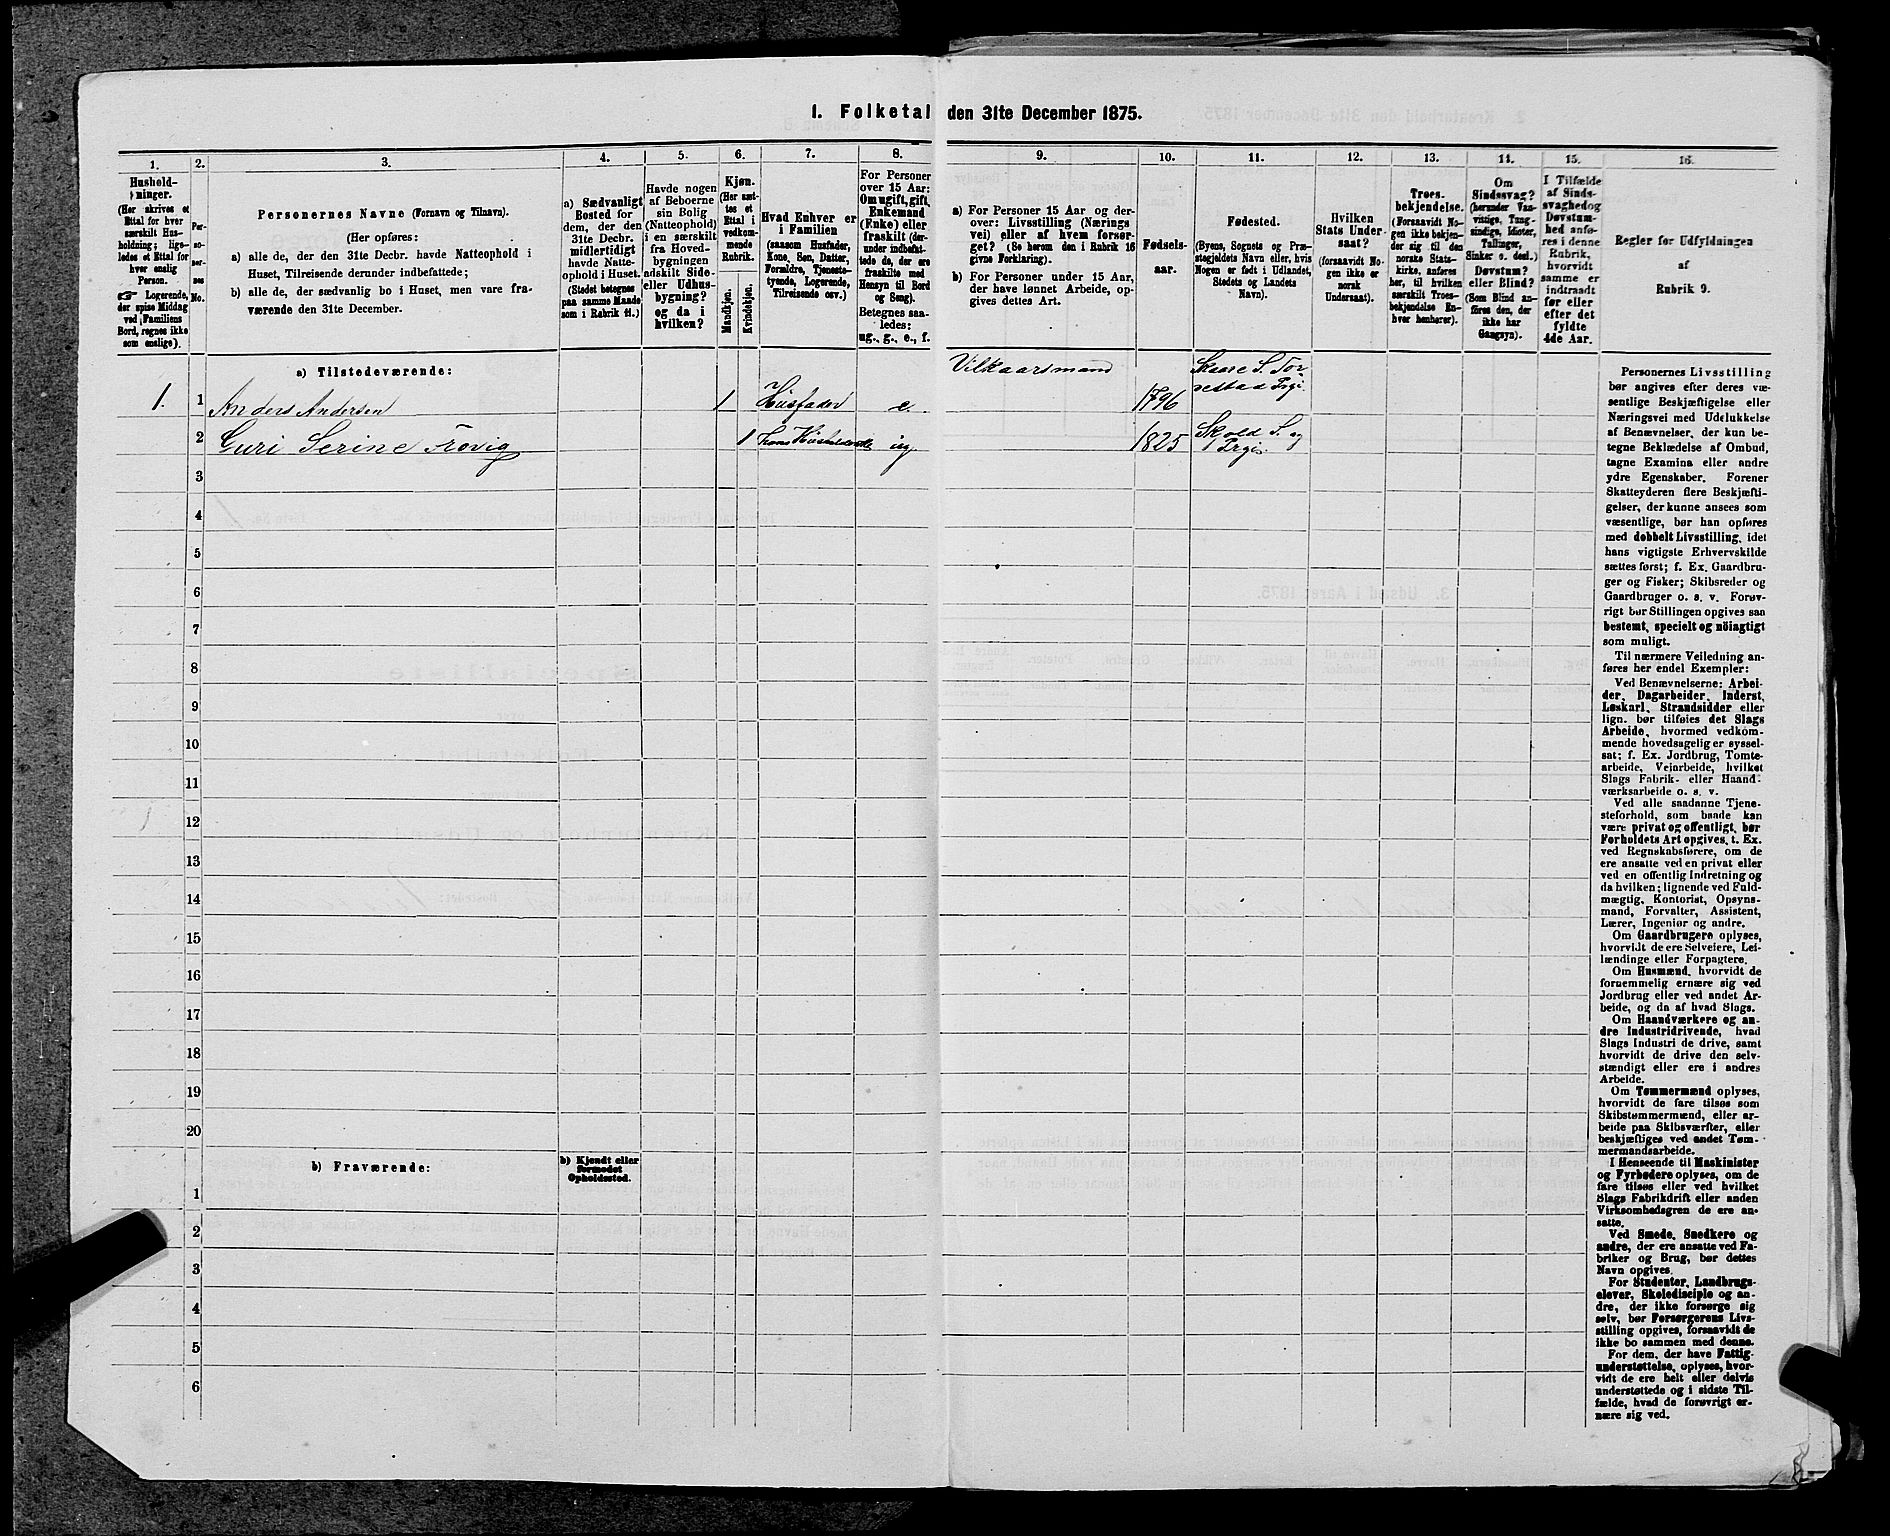 1. Folketal den 31te December 1875.
1.
Hushold-
ninger.
(Her skrives et
Ettal for hver
særskilt Hus-
holdning; lige-
ledes et Ettal for
hver enslig
Person.
Logerende,
der spise Middag
ved Familiens
Bord, regnes ikke
som enslige).
2.
Per-
so-
ner-
nes
No.
3.
Personernes Navne (Fornavn og Tilnavn).
(Her opføres:
a) alle de, der den 31te Decbr. havde Natteophold i
Huset, Tilreisende derunder indbefattede;
b) alle de, der sædvanlig bo i Huset, men vare fra-
værende den 31te December.
4.
a) Sædvanligt
Bosted for
dem, der den
31te Decbr.
midlertidigt
havde Natte-
ophold i Huset.
(Stedet betegnes
paa samme Maade
som i Rubrik 11.)
5.
Havde nogen
af Beboerne
sin Bolig
(Natteophold)
i en særskilt
fra Hoved-
bygningen
adskilt Side-
eller Udhus-
bygning?
og da i
hvilken?
6.
Kjøn.
(Her sæt-
tes et
Ettal i
vedkom-
mende
Rubrik.
Mandkjøn.
Kvindekjøn.
7.
Hvad Enhver er
i Familien
(saasom Husfader,
Kone, Søn, Datter,
Forældre, Tjeneste-
tyende, Logerende,
Tilreisende osv.)
8.
For Personer
over 15 Aar:
Om ugift, gift,
Enkemand
(Enke) eller
fraskilt (der-
under indbefat-
tede de, der ere
fraskilte med
Hensyn til Bord
og Seng).
Betegnes saa-
ledes:
ug., g., e., f.
9.
a) For Personer 15 Aar og der-
over: Livsstilling (Nærings
vei) eller af hvem forsør-
get? (Se herom den i Rubrik 16
givne Forklaring).
b) For Personer under 15 Aar,
der have lønnet Arbeide, op-
gives dettes Art.
10.
Fødsels-
aar.
11.
Fødested.
(Byens, Sognets og Præ-
stegjeldets Navn eller, hvis
Nogen er født i Udlandet,
Stedets og Landets
Navn).
12.
Hvilken
Stats Under-
saat?
(forsaavidt No-
gen ikke er
norsk
Undersaat).
13.
Troes-
bekjendelse.
(Forsaavidt No-
gen ikke bekjen-
der sig til den
norske Stats-
kirke, anføres
her, til hvilken
særskilt Troes-
bekjendelse En-
hver henhører).
14.
Om
Sindssvag?
(herunder Van-
vittige, Tung-
sindige, Idioter,
Tullinger,
Sinker o. desl.)
Døvstum?
eller Blind?
(Som Blind an-
føres den, der
ikke har
Gangsyn).
15.
I Tilfælde
af Sinds-
svaghed og
Døvstum-
hed anfø-
res i denne
Rubrik,
hvorvidt
samme er
indtraadt
før eller
efter det
fyldte
4de Aar.
16.
Regler for Udfyldningen
af
Rubrik 9.
a) Tilstedeværende:
1. 1 Anders Andersen 1 Husfader e. Vilkaarsmand 1796 Skaare S. Tor-
vestad Prgj.
2 Guri Serine Frovig 1 hans Husholderske ug. 1825 Skjold S. og
Prgj.
3
4
5
6
7
8
9
10
11
12
13
14
15
16
17
18
19
20
b) Fraværende:
b) Kjendt eller
formodet
Opholdssted.
1
2
3
4
5
6
Personernes Livsstilling
bør angives efter deres væ-
sentlige Beskjæftigelse eller
Næringsvei med Udelukkelse
af Benævnelser, der kun be-
tegne Beklædelse af Ombud,
tagne Examina eller andre
ydre Egenskaber. Forener
Skatteyderen flere Beskjæfti-
gelser, der kunne ansees som
væsentlige, bør han opføres
med dobbelt Livsstilling, idet
hans vigtigste Erhvervskilde
sættes først; f. Ex. Gaardbru-
ger og Fisker; Skibsreder og
Gaardbruger o. s. v. Forøv-
rigt bør Stillingen opgives saa
bestemt, specielt og nøiagtigt
som muligt.
Til nærmere Veiledning an-
føres her endel Exempler:
Ved Benævnelserne: Arbei-
der, Dagarbeider, Inderst,
Løskarl, Strandsidder eller
lign. bør tilføies det Slags
Arbeide, hvormed vedkom-
mende hovedsagelig er syssel-
sat; f. Ex. Jordbrug, Tomte-
arbeide, Veiarbeide, hvilket
Slags Fabrik- eller Haand-
værksarbeide o. s. v.
Ved alle saadanne Tjene-
steforhold, som baade kan
være privat og offentligt, bør
Forholdets Art opgives, t. Ex.
ved Regnskabsførere, om de
ere ansatte ved en privat eller
ved en offentlig Indretning og
da hvilken; lignende ved Fuld-
mægtig, Kontorist, Opsyns-
mand, Forvalter, Assistent,
Lærer, Ingeniør og andre.
Om Gaardbrugere oplyses,
hvorvidt de ere Selveiere, Lei-
lændinge eller Forpagtere.
Om Husmænd, hvorvidt de
fornemmelig ernære sig ved
Jordbrug eller ved andet Ar-
beide, og da af hvad Slags.
Om Haandværkere og an-
dre Industridrivende, hvad
Slags Industri de drive, samt
hvorvidt de drive den selv-
stændigt eller ere i andres
Arbeide.
Om Tømmermænd oplyses,
hvorvidt de fare tilsøs som
Skibstømmermænd, eller ar-
beide paa Skibsværfter, eller
beskjæftiges ved andet Tøm-
mermandsarbeide.
I Henseende til Maskinister
og Fyrbødere oplyses, om de
fare tilsøs eller ved hvilket
Slags Fabrikdrift eller anden
Virksomhedsgren de ere an-
satte.
Ved Smede, Snedkere og
andre, der ere ansatte ved Fa-
briker og Brug, bør dettes
Navn opgives.
For Studenter, Landbrugs-
elever, Skoledisciple og an-
dre, der ikke forsørge sig
selv, bør Forsørgerens Livs-
stilling opgives, forsaavidt de
ikke bo sammen med denne.
For dem, der have Fattig-
understøttelse, oplyses, hvor-
vidt de ere helt eller delvis
understøttede og i sidste Til-
fælde, hvad de forøvrigt er-
nære sig ved.